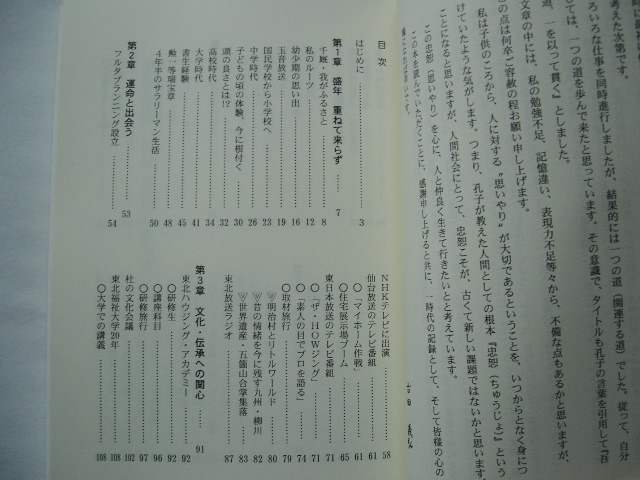 考えられる次第です。
いろいろな仕事を同時進行しましたが、結果的には一つの道(関連する道)でした。従って、自分
しては、一つの道を歩んで来たと思っています。その意識で、タイトルも孔子の言葉を引用して『吾
道、一を以って貫く』としました。
文章の中には、私の勉強不足、記憶違い、表現力不足等々から、不備な点もあるかと思いますが、
の点は何卒ご容赦の程お願い申し上げます。
私は子供のころから、人に対する〝思いやり〟が大切であるということを、いつからとなく身につ
けていたような気がします。つまり、孔子が教えた人間としての根本『忠恕(ちゅうじょ)』という
ことになると思いますが、人間社会にとって、忠恕こそが、古くて新しい課題ではないかと思います。
この忠恕(思いやり)を心に、人と仲良く生きて行きたいとと考えています。
この本を読んでいただくことに、感謝申し上げると共に、一時代の記録として、そして皆様の心の
目次
はじめに 3
第1章 盛年 重ねて来らず 7
千厩・我がふるさと 8
私のルーツ 12
幼少期の思い出 16
玉音放送 19
国民学校から小学校へ 23
中学時代 26
子どもの頃の体験、今に根付く 30
頭の良さとは!? 32
高校時代 34
大学時代 41
書生経験 45
勲一等瑞宝章 48
4年半のサラリーマン生活 50
第2章 運命と出会う 53
フルタプランニング設立 54
NHKテレビに出演 58
仙台放送のテレビ番組 61
○「マイホーム作戦」 61
○住宅展示場ブーム 65
東日本放送のテレビ番組 71
○「ザ・HOWジング」 71
○「素人の目でプロを語る」 74
○取材旅行 79
▽明治村とリトルワールド 80
▽昔の情緒を今に残す九州・柳川 82
▽世界遺産・五箇山合掌集落 83
東北放送ラジオ 87
第3章 文化・伝承への関心 91
東北ハウジング・アカデミー 92
○研修生 92
○講座科目 96
○研修旅行 97
杜の文化会議 102
東北福祉大学20年 108
○大学での講義 108